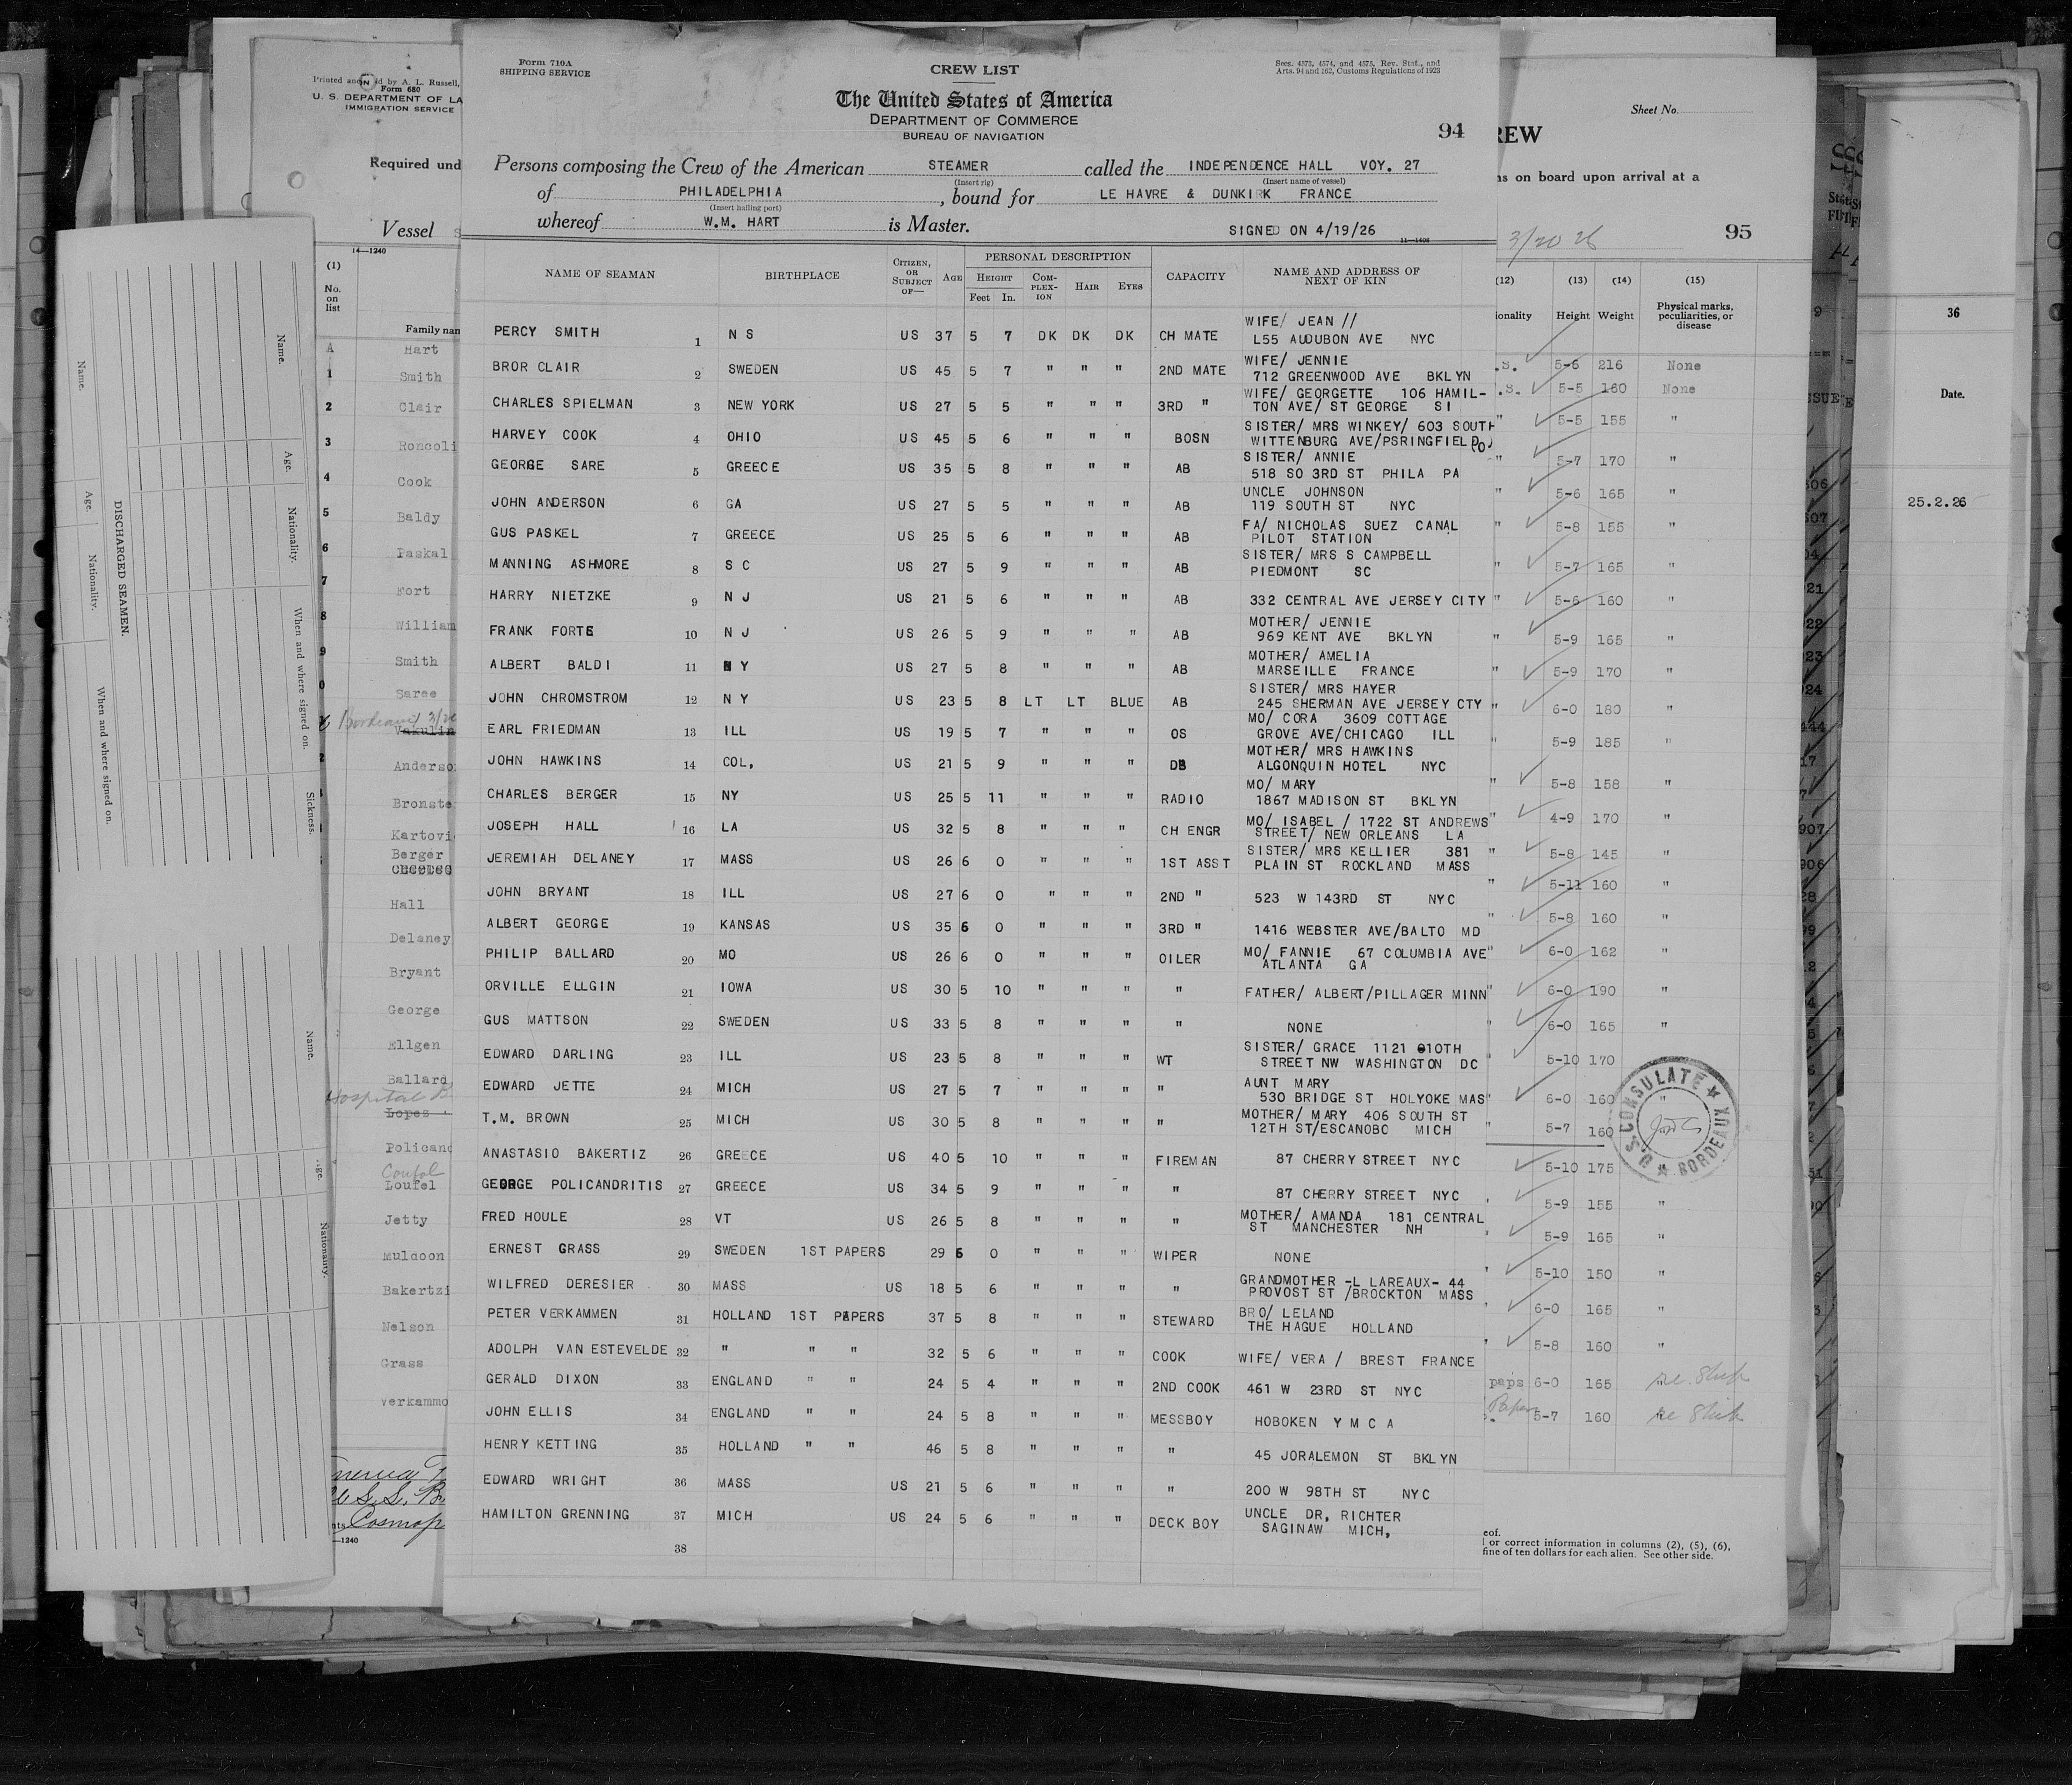 Form 710A
SHIPPING SERVICE
CREW LIST
Secs. 4573, 4574, and 4575, Rev. Stat., and
Arts. 94 and 162, Customs Regulations of 1923
The United States of America
DEPARTMENT OF COMMERCE
BUREAU OF NAVIGATION
94
Persons composing the Crew of the American STEAMER called the INDEPENDENCE HALL VOY. 27
(Insert rig) (Insert name of vessel)
of PHILADELPHIA, bound for LE HAVRE & DUNKIRK FRANCE
(Insert hailing port)
whereof W.M. HART is Master. SIGNED ON 4/19/26
NAME OF SEAMAN BIRTHPLACE CITIZEN, OR SUBJECT OF— AGE PERSONAL DESCRIPTION CAPACITY NAME AND ADDRESS OF NEXT OF KIN
HEIGHT COM-PLEX-ION HAIR EYES
Feet In.
PERCY SMITH 1 N S US 37 5 7 DK DK DK CH MATE WIFE/ JEAN //
L55 AUDUBON AVE NYC
BROR CLAIR 2 SWEDEN US 45 5 7 " " " 2ND MATE WIFE/ JENNIE
712 GREENWOOD AVE BKLYN
CHARLES SPIELMAN 3 NEW YORK US 27 5 5 " " " 3RD " WIFE/ GEORGETTE 106 HAMIL-
TON AVE/ ST GEORGE SI
HARVEY COOK 4 OHIO US 45 5 6 " " " BOSN SISTER/ MRS WINKEY/ 603 SOUTH
WITTENBURG AVE/PSRINGFIELD O
GEORGE SARE 5 GREECE US 35 5 8 " " " AB SISTER/ ANNIE
518 SO 3RD ST PHILA PA
JOHN ANDERSON 6 GA US 27 5 5 " " " AB UNCLE JOHNSON
119 SOUTH ST NYC
GUS PASKEL 7 GREECE US 25 5 6 " " " AB FA/ NICHOLAS SUEZ CANAL
PILOT STATION
MANNING ASHMORE 8 S C US 27 5 9 " " " AB SISTER/ MRS S CAMPBELL
PIEDMONT SC
HARRY NIETZKE 9 N J US 21 5 6 " " " AB 332 CENTRAL AVE JERSEY CITY
FRANK FORTE 10 N J US 26 5 9 " " " AB MOTHER/ JENNIE
969 KENT AVE BKLYN
ALBERT BALDI 11 N Y US 27 5 8 " " " AB MOTHER/ AMELIA
MARSEILLE FRANCE
JOHN CHROMSTROM 12 N Y US 23 5 8 LT LT BLUE AB SISTER/ MRS HAYER
245 SHERMAN AVE JERSEY CTY
EARL FRIEDMAN 13 ILL US 19 5 7 " " " OS MO/ CORA 3609 COTTAGE
GROVE AVE/CHICAGO ILL
JOHN HAWKINS 14 COL, US 21 5 9 " " " DB MOTHER/ MRS HAWKINS
ALGONQUIN HOTEL NYC
CHARLES BERGER 15 NY US 25 5 11 " " " RADIO MO/ MARY
1867 MADISON ST BKLYN
JOSEPH HALL 16 LA US 32 5 8 " " " CH ENGR MO/ ISABEL / 1722 ST ANDREWS
STREET/ NEW ORLEANS LA
JEREMIAH DELANEY 17 MASS US 26 6 0 " " " 1ST ASST SISTER/ MRS KELLIER 381
PLAIN ST ROCKLAND MASS
JOHN BRYANT 18 ILL US 27 6 0 " " " 2ND " 523 W 143RD ST NYC
ALBERT GEORGE 19 KANSAS US 35 6 0 " " " 3RD " 1416 WEBSTER AVE/BALTO MD
PHILIP BALLARD 20 MO US 26 6 0 " " " OILER MO/ FANNIE 67 COLUMBIA AVE
ATLANTA GA
ORVILLE ELLGIN 21 IOWA US 30 5 10 " " " " FATHER/ ALBERT/PILLAGER MINN
GUS MATTSON 22 SWEDEN US 33 5 8 " " " " NONE
EDWARD DARLING 23 ILL US 23 5 8 " " " WT SISTER/ GRACE 1121 010TH
STREET NW WASHINGTON DC
EDWARD JETTE 24 MICH US 27 5 7 " " " " AUNT MARY
530 BRIDGE ST HOLYOKE MAS
T.M. BROWN 25 MICH US 30 5 8 " " " " MOTHER/ MARY 406 SOUTH ST
12TH ST/ESCANOBO MICH
ANASTASIO BAKERTIZ 26 GREECE US 40 5 10 " " " FIREMAN 87 CHERRY STREET NYC
GEORGE POLICANDRITIS 27 GREECE US 34 5 9 " " " " 87 CHERRY STREET NYC
FRED HOULE 28 VT US 26 5 8 " " " " MOTHER/ AMANDA 181 CENTRAL
ST MANCHESTER NH
ERNEST GRASS 29 SWEDEN 1ST PAPERS 29 6 0 " " " WIPER NONE
WILFRED DERESIER 30 MASS US 18 5 6 " " " " GRANDMOTHER -L LAREAUX- 44
PROVOST ST /BROCKTON MASS
PETER VERKAMMEN 31 HOLLAND 1ST PAPERS 37 5 8 " " " STEWARD BRO/ LELAND
THE HAGUE HOLLAND
ADOLPH VAN ESTEVELDE 32 " " " 32 5 6 " " " COOK WIFE/ VERA / BREST FRANCE
GERALD DIXON 33 ENGLAND " " 24 5 4 " " " 2ND COOK 461 W 23RD ST NYC
JOHN ELLIS 34 ENGLAND " " 24 5 8 " " " MESSBOY HOBOKEN Y M C A
HENRY KETTING 35 HOLLAND " " 46 5 8 " " " " 45 JORALEMON ST BKLYN
EDWARD WRIGHT 36 MASS US 21 5 6 " " " " 200 W 98TH ST NYC
HAMILTON GRENNING 37 MICH US 24 5 6 " " " DECK BOY UNCLE DR, RICHTER
SAGINAW MICH,
38
Form 680
U. S. DEPARTMENT OF LA
IMMIGRATION SERVICE
Required und
Vessel
14—1240
(1)
No. on list
Family nam
A Hart
1 Smith
2 Clair
3 Roncoli
4 Cook
5 Baldy
6 Paskal
7 Fort
8 William
9 Smith
0 Saree
Vakulin
Anderso
Bronste
Kartovi
Berger
Hall
Delaney
Bryant
George
Ellgen
Ballard
Hospital
Lopez
Policand
Coufol
Loufel
Jetty
Muldoon
Bakertzi
Nelson
Grass
verkammo
Cosmop
—1240
Sheet No.
REW
ns on board upon arrival at a
3/20 26
95
(12) (13) (14) (15)
ionality Height Weight Physical marks, peculiarities, or disease
.S. 5-6 216 None
.S. 5-5 160 None
" 5-5 155 "
" 5-7 170 "
" 5-6 165 "
" 5-8 155 "
" 5-7 165 "
" 5-6 160 "
" 5-9 165 "
" 5-9 170 "
" 6-0 180 "
" 5-9 185 "
" 5-8 158 "
" 4-9 170 "
" 5-8 145 "
" 5-11 160 "
" 5-8 160 "
" 6-0 162 "
" 6-0 190 "
" 6-0 165 "
" 5-10 170
" 6-0 160 "
" 5-7 160
5-10 175
5-9 155 "
5-9 165 "
5-10 150 "
6-0 165 "
5-8 160 "
paps 6-0 165
5-7 160
U.S. CONSULATE BORDEAUX
eof.
or correct information in columns (2), (5), (6),
fine of ten dollars for each alien. See other side.
36
Date.
25.2.26
DISCHARGED SEAMEN.
Name.
Age.
Nationality.
When and where signed on.
Name.
Age.
Nationality.
When and where signed on.
Sickness.
Name.
Nationality.